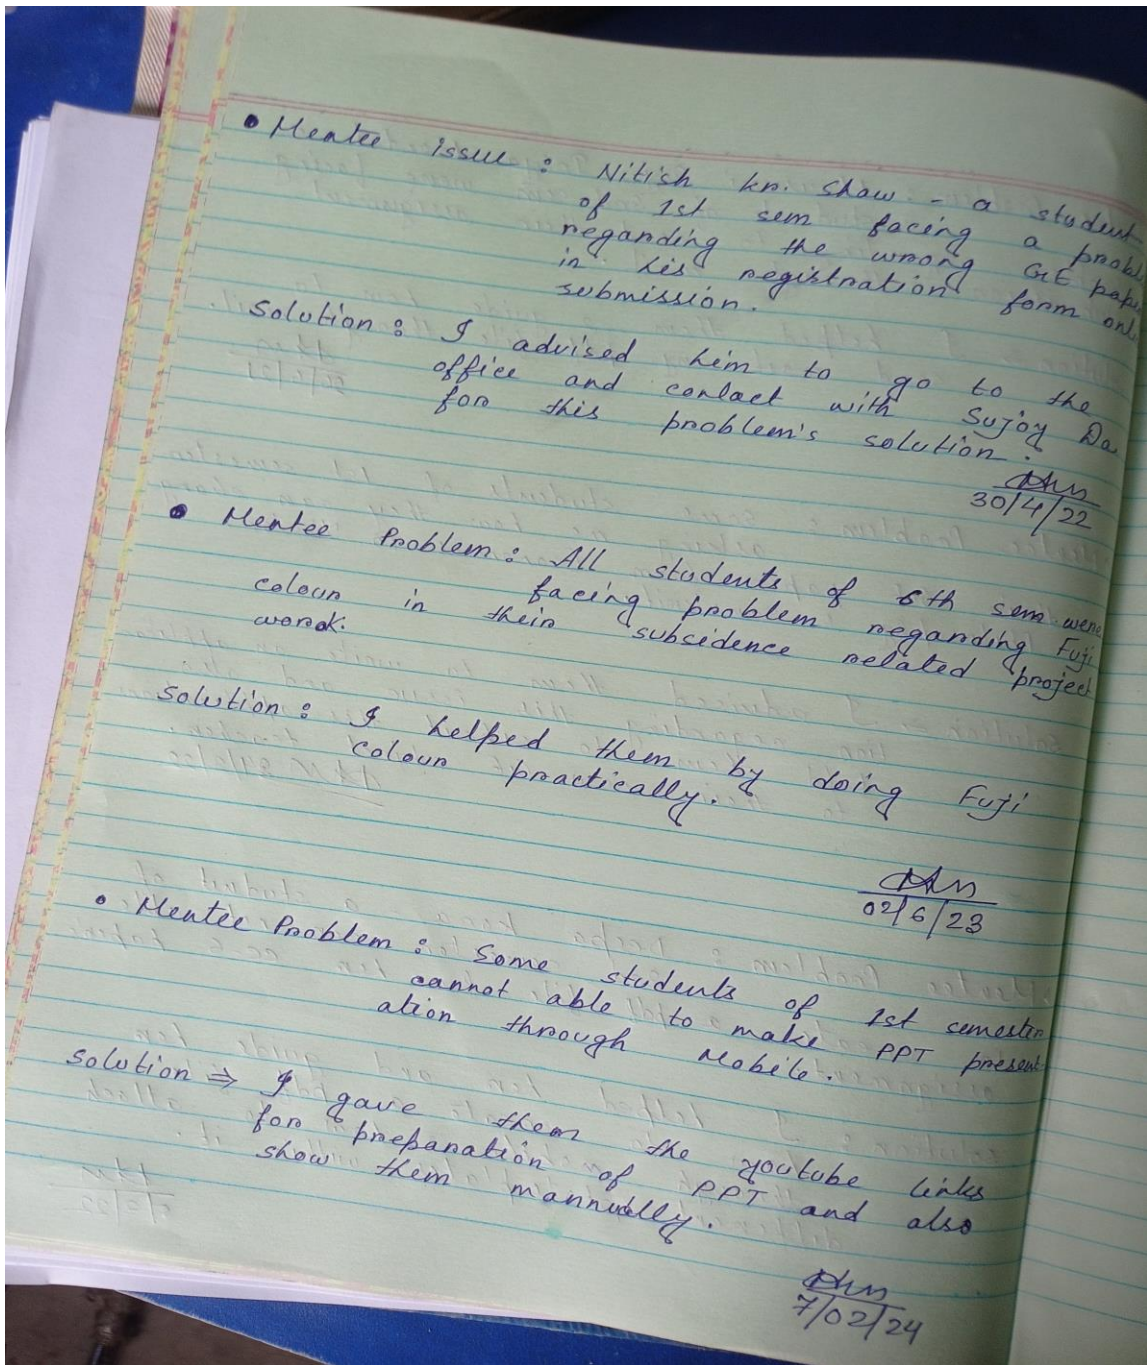 • Mentee issue : Nitish kr. Shaw - a student
of 1st sem facing a probl
regarding the wrong GE pape
in his registration form onl
submission.
Solution : I advised him to go to the
office and contact with Sujoy Da
for this problem's solution.
30/4/22
• Mentee Problem : All students of 6th sem were
facing problem regarding Fuji
colour in their subsidence related project
work.
Solution : I helped them by doing Fuji
colour practically.
02/6/23
• Mentee Problem : Some students of 1st semester
cannot able to make PPT present-
ation through Mobile.
Solution ⇒ I gave them the youtube links
for preparation of PPT and also
show them mannually.
7/02/24